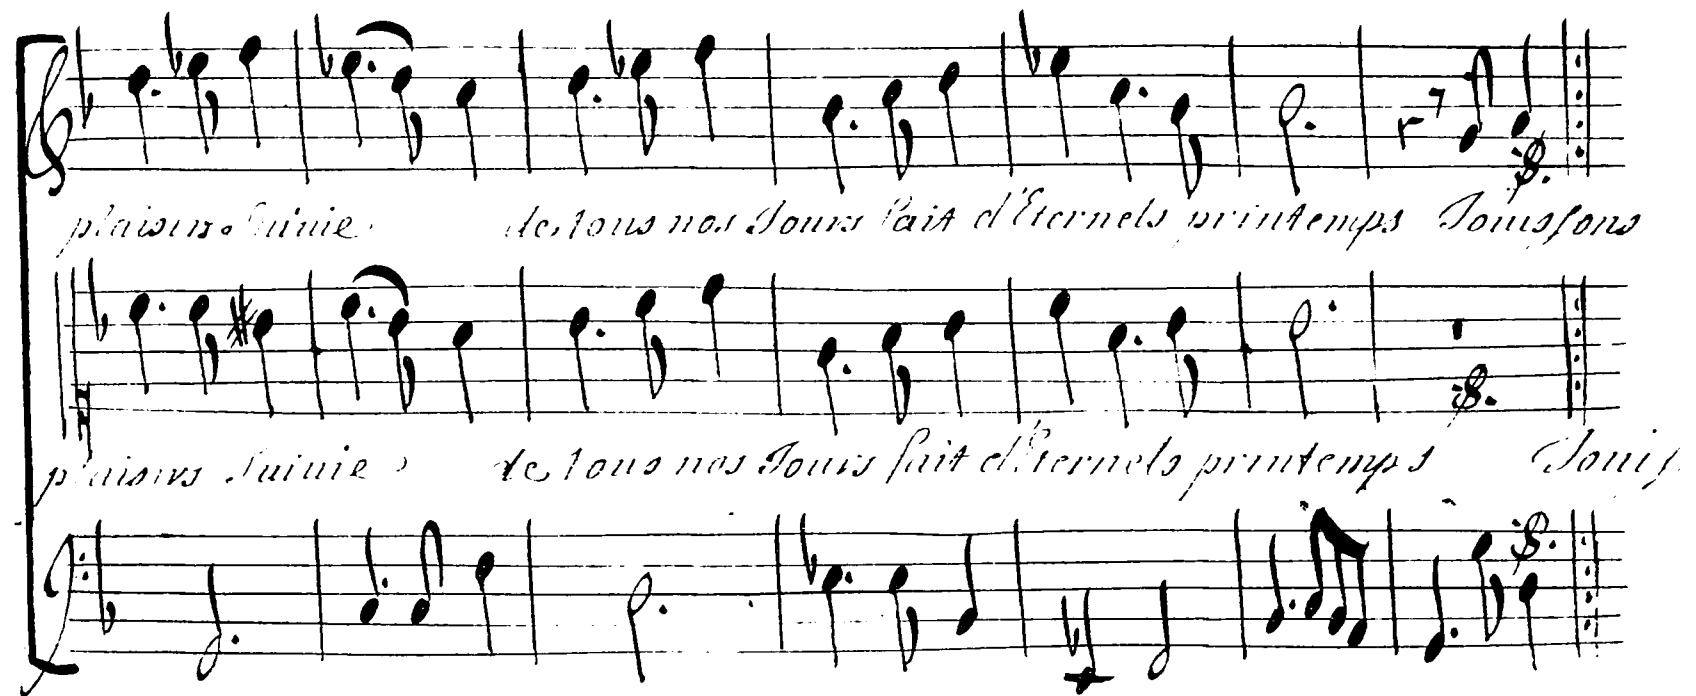 plaisirs Suivie de tous nos Jours fait d'Eternels printemps Jouissons
plaisirs Suivie de tous nos Jours fait d'Eternels printemps Jouis